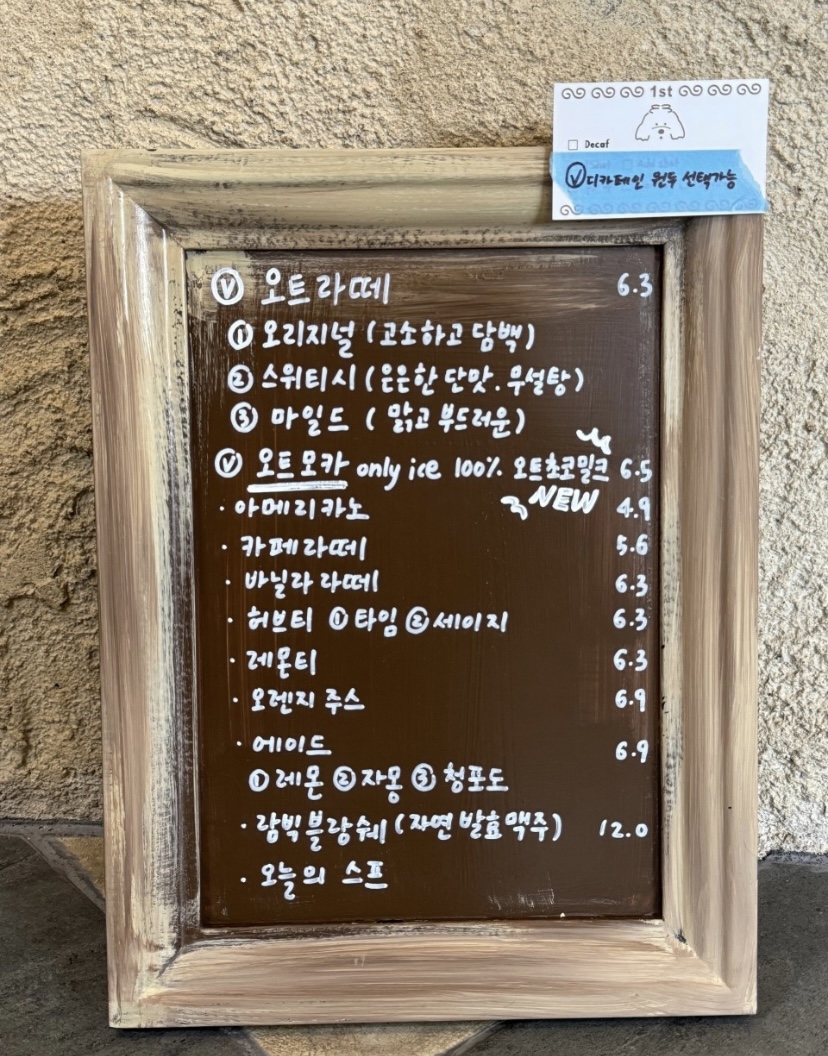 1st
Decaf
Ⓥ디카페인 원두 선택가능
Ⓥ 오트라떼 6.3
① 오리지널 (고소하고 담백)
② 스위티시 (은은한 단맛. 무설탕)
③ 마일드 ( 맑고 부드러운)
Ⓥ 오트모카 only ice 100% 오트초코밀크 6.5
NEW
· 아메리카노 4.9
· 카페라떼 5.6
· 바닐라 라떼 6.3
· 허브티 ①타임 ②세이지 6.3
· 레몬티 6.3
· 오렌지 주스 6.9
· 에이드 6.9
①레몬 ②자몽 ③청포도
· 람빅블랑쉐 (자연 발효맥주) 12.0
· 오늘의 스프